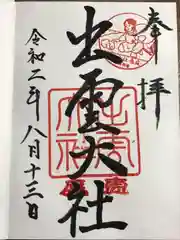 奉拝
出雲大社
令和二年八月十三日